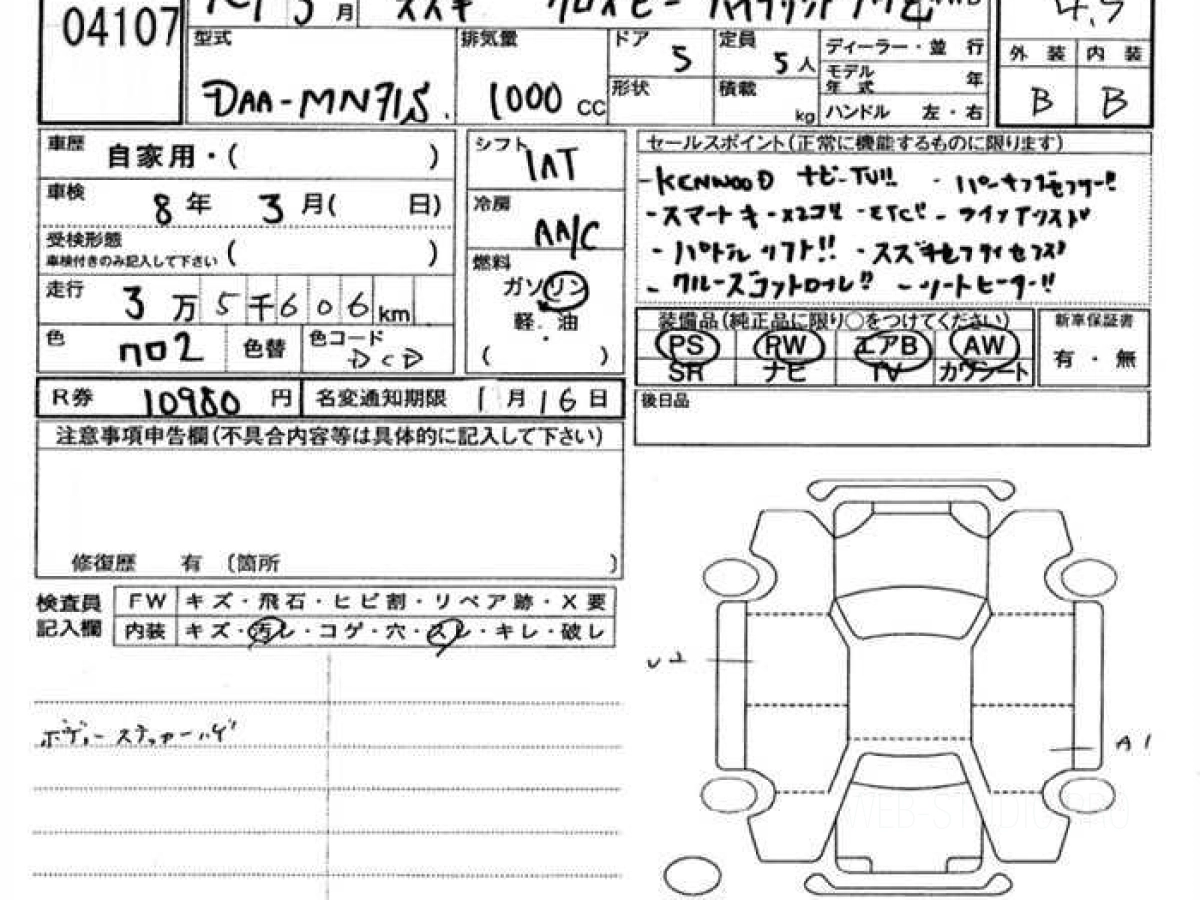 04107
月 スズキ クロスビー ハイブリッド
型式 DAA-MN71S.
排気量 1000 CC
ドア 5
定員 5人
形状
積載 kg
ディーラー・並行
モデル年式 年
ハンドル 左・右
外装 内装
B B
車歴 自家用・( )
車検 8年 3月( 日)
受検形態
車検付きのみ記入して下さい ( )
走行 3万5千606km
色 クロ2 色替 色コード DCD
シフト IAT
冷房 AA/C
燃料
ガソリン
軽.油
( )
セールスポイント(正常に機能するものに限ります)
-KENWOOD ナビ-TV!!
-スマートキ-x2コ!! -ETC!!
-パドルシフト!!
-クルーズコントロール!! -シートヒーター!!
装備品(純正品に限り○をつけてください)
PS PW エアB AW
SR ナビ TV カワシート
新車保証書
有・無
R券 10980 円 名変通知期限 1月16日
後日品
注意事項申告欄(不具合内容等は具体的に記入して下さい)
修復歴 有 〔箇所 〕
検査員
記入欄
FW キズ・飛石・ヒビ割・リペア跡・X要
内装 キズ・汚レ・コゲ・穴・スレ・キレ・破レ
ボディーステッカーハゲ
U2
A1
WEB-STUDIO.PRO